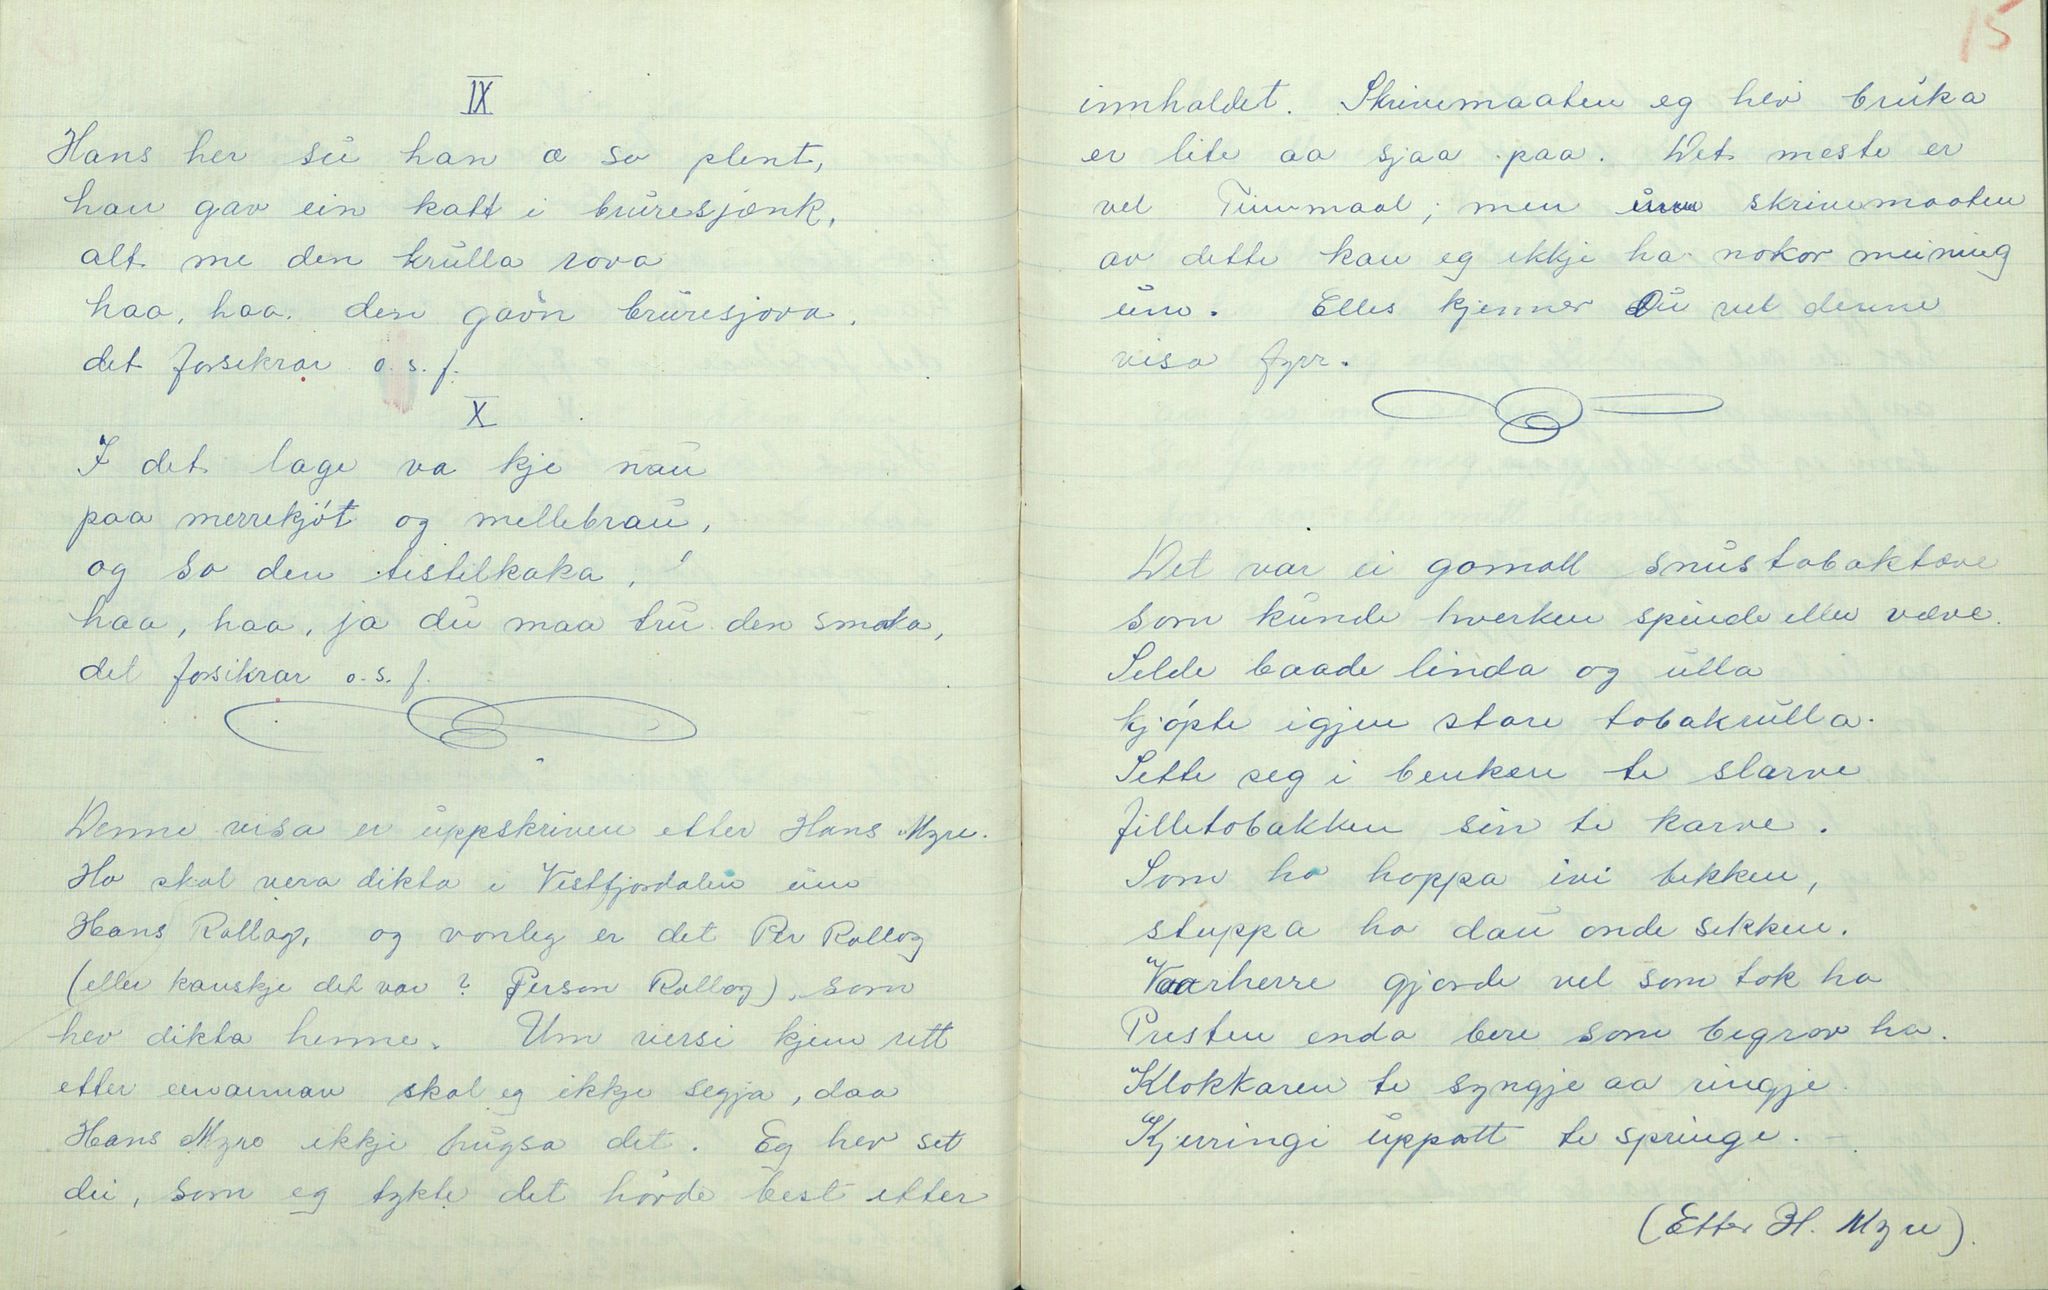 IX
Hans her su han æ so plent,
han gav ein katt i bruresjænk,
alt me den krulla rova
haa, haa. den gavn bruresjova.
det forsikrar o. s. f.
X
I det lage va kje nau
paa merrekjøt og mellebrau,
og so den tistilkaka,!
haa, haa, ja du maa tru den smaka,
det forsikrar o. s. f.
Denne visa er uppskriven etter Hans Myre.
Ho skal vera dikta i Vestfjordalen um
Hans Rollag, og vonleg er det Per Rollag
(eller kanskje det var ? Person Rollag), som
hev dikta henne. Um versi kjem rett
etter einannan skal eg ikkje segja, daa
Hans Myro ikkje hugsa det. Eg hev set
dei, som eg tykte det høvde best etter
15
innhaldet. Skrivemaaten eg hev bruka
er lite aa sjaa paa. Det meste er
vel Tinnmaal; men um skrivemaaten
av dette kan eg ikkje ha nokor meining
um. Elles kjenner Du vel denne
visa fyrr.
Det var ei gomall snustobaktæve
som kunde hverken spinde eller væve.
Selde baade linda og ulla
kjøpte igjen store tobakrulla.
Sette seg i benken te slarve
filletobakken sin te karve.
Som ho hoppa ivi bekken,
stuppa ho dau onde sekken.
Vaarherre gjorde vel som tok ho
Presten enda bere som begrov ho.
Klokkaren te syngje aa ringje.
Kjerringi uppatt te springe.
(Etter H. Myre).